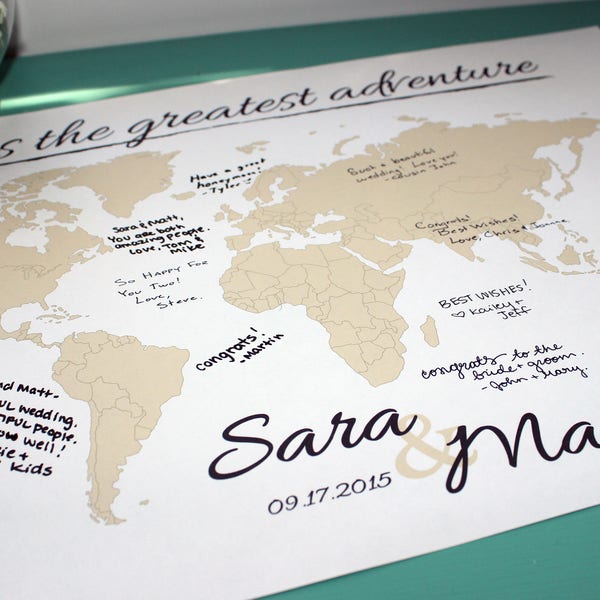 s the greatest adventure
Have a great
honeymoon!
- Tyler
Such a beautiful
wedding! Love you!
- Cousin John
Sara & Matt,
You are both
amazing people.
Love, Tom &
Mike
Congrats!
Best Wishes!
Love, Chris & Joanne
So Happy For
You Two!
Love,
Steve.
BEST WISHES!
♡ Kailey +
Jeff
congrats!
-Martin
congrats to the
bride + groom.
- John + Mary
nd Matt-
UL wedding.
people.
well!
ie +
kids
Sara & Ma
09.17.2015